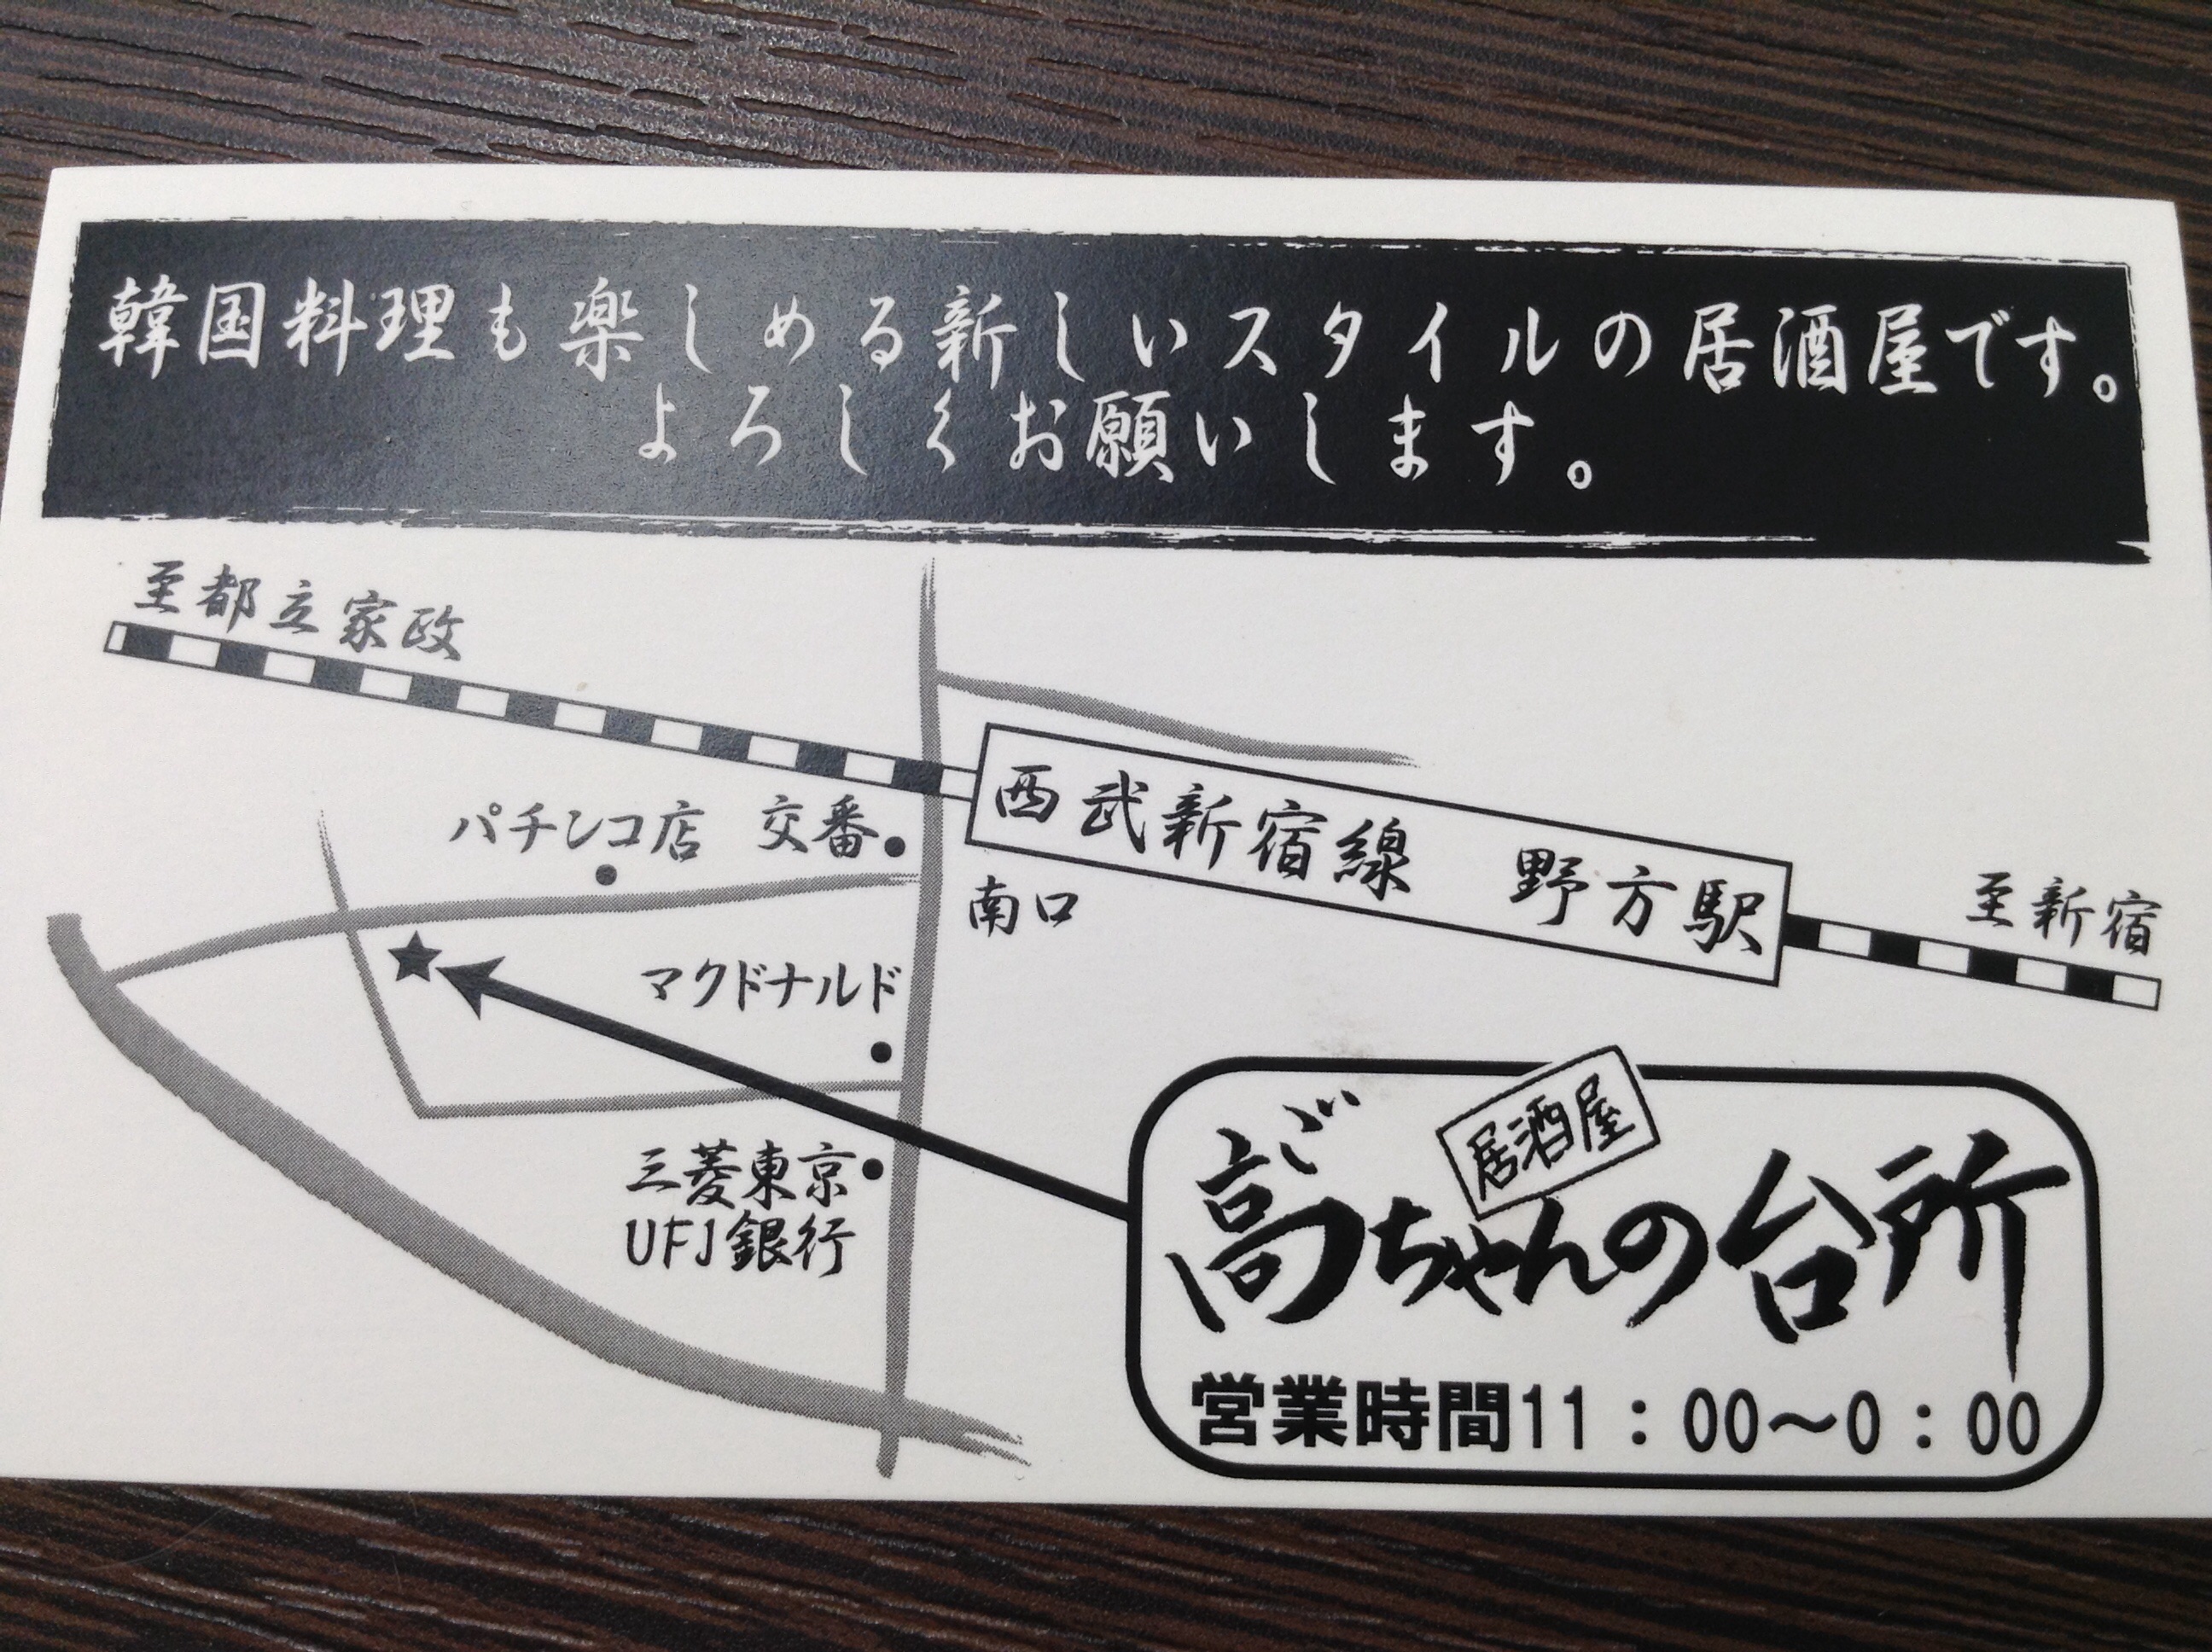 韓国料理も楽しめる新しいスタイルの居酒屋です。
よろしくお願いします。
至都立家政
西武新宿線 野方駅
至新宿
パチンコ店 交番
南口
マクドナルド
三菱東京
UFJ銀行
居酒屋
ご
高ちゃんの台所
営業時間11:00〜0:00